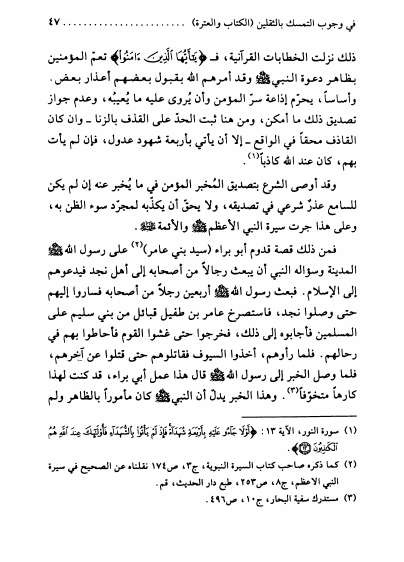 في وجوب التمسك بالثقلين (الكتاب والعترة) ........................ ٤٧
ذلك نزلت الخطابات القرآنية، فـ ﴿يَا أَيُّهَا الَّذِينَ ءَامَنُوا﴾ تعمّ المؤمنين
بظاهر دعوة النبيﷺ وقد أمرهم الله بقبول بعضهم أعذار بعض.
وأساساً، يحرّم إذاعة سرّ المؤمن وأن يُروى عليه ما يُعيبُه، وعدم جواز
تصديق ذلك ما أمكن، ومن هنا ثبت الحدّ على القذف بالزنا ـ وان كان
القاذف محقاً في الواقع ـ إلا أن يأتي بأربعة شهود عدول، فإن لم يأت
بهم، كان عند الله كاذباً(١).
وقد أوصى الشرع بتصديق المُخبر المؤمن في ما يُخبر عنه إن لم يكن
للسامع عذرٌ شرعي في تصديقه، ولا يحقّ أن يكذّبه لمجرّد سوء الظن به،
وعلى هذا جرت سيرة النبي الأعظمﷺ والأئمة
فمن ذلك قصة قدوم أبو براء (سيد بني عامر)(٢) على رسول اللهﷺ
المدينة وسؤاله النبي أن يبعث رجالاً من أصحابه إلى أهل نجد فيدعوهم
إلى الإسلام. فبعث رسول اللهﷺ أربعين رجلاً من أصحابه فساروا إليهم
حتى وصلوا نجد، فاستصرخ عامر بن طفيل قبائل من بني سليم على
المسلمين فأجابوه إلى ذلك، فخرجوا حتى غشوا القوم فأحاطوا بهم في
رحالهم. فلما رأوهم، أخذوا السيوف فقاتلوهم حتى قتلوا عن آخرهم،
فلما وصل الخبر إلى رسول اللهﷺ قال هذا عمل أبي براء، قد كنت لهذا
كارهاً متخوّفاً(٣). وهذا الخبر يدلّ أن النبيﷺ كان مأموراً بالظاهر ولم
(١) سورة النور، الآية ١٣: ﴿لَّوْلَا جَاءُو عَلَيْهِ بِأَرْبَعَةِ شُهَدَاءَ فَإِذْ لَمْ يَأْتُوا بِالشُّهَدَاءِ فَأُولَٰئِكَ عِندَ اللَّهِ هُمُ
الْكَاذِبُونَ ١٣﴾.
(٢) كما ذكره صاحب كتاب السيرة النبوية، ج٣، ص١٧٤ نقلناه عن الصحيح في سيرة
النبي الاعظم، ج٨، ص٢٥٣، طبع دار الحديث، قم.
(٣) مستدرك سفية البحار، ج١٠، ص٤٩٦.